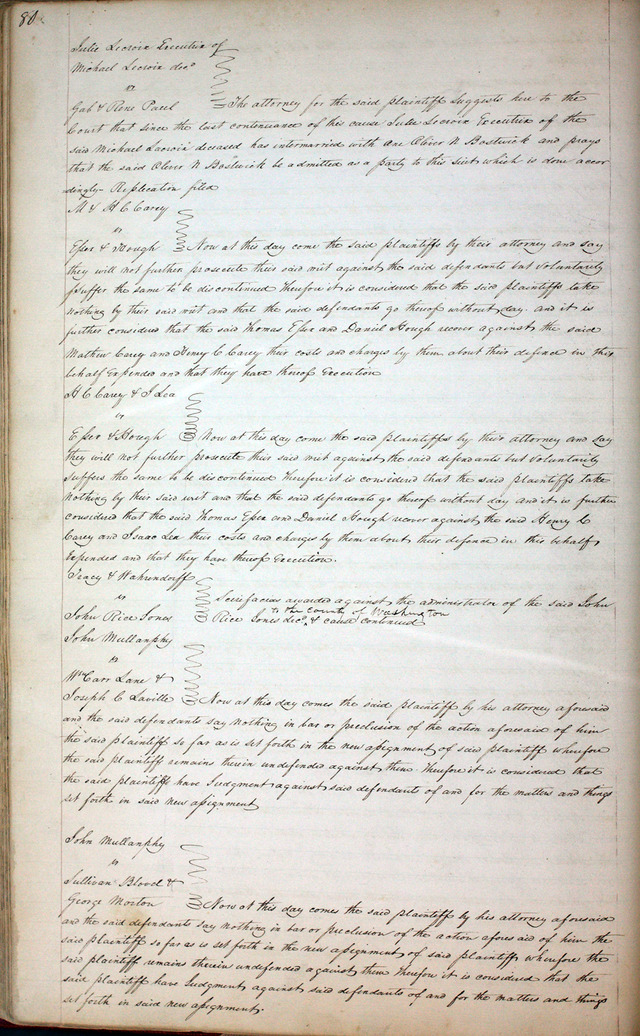 80
Julie Lecroix Executrix of
Michael Lecroix decd
vs
Gab & Rene Paul The attorney for the said plaintiff suggests here to the
Court that since the last continuance of this cause Julie Lecroix Executrix of the
said Michael Lacroix deceased has intermarried with one Oliver N Bostwick and prays
that the said Oliver N Bostwick be admitted as a party to this suit which is done accor
dingly - Replication filed
M & H C Carey
vs
Essex & Hough Now at this day come the said plaintiffs by their attorney and say
they will not further prosecute their said writ against the said defendants but voluntarily
suffer the same to be discontinued Therefore it is considered that the said plaintiffs take
nothing by their said writ and that the said defendants go thereof without day. and it is
further considered that the said Thomas Essex and Daniel Hough recover against the said
Mathew Carey and Henry C Carey their costs and charges by them about their defence in this
behalf Expended and that they have thereof Execution
H C Carey & I Lea
vs
Essex & Hough Now at this day come the said plaintiffs by their attorney and say
they will not further prosecute their said writ against the said defendants but voluntarily
suffers the same to be discontinued Therefore it is considered that the said plaintiffs take
nothing by their said writ and that the said defendants go thereof without day and it is further
considered that the said Thomas Essex and Daniel Hough recover against the said Henry C
Carey and Isaac Lea their costs and charges by them about their defence in this behalf
Expended and that they have thereof Execution.
Tracy & Wahrendorff
vs
Scirefacias awarded against the administrator of the said John
to the County of Washington
John Rice Jones Rice Jones decd. & cause continued
John Mullanphy
vs
Wm Carr Lane &
Joseph C Laville Now at this day comes the said plaintiff by his attorney aforesaid
and the said defendants say nothing in bar or preclusion of the action aforesaid of him
the said plaintiff so far as is set forth in the new assignment of said plaintiff wherefore
the said plaintiff remains therein undefended against them Therefore it is considered that
the said plaintiff have Judgment against said defendants of and for the matters and things
set forth in said new assignment
John Mullanphy
vs
Sullivan Blood &
George Morton Now at this day comes the said plaintiff by his attorney aforesaid
and the said defendants say nothing in bar or preclusion of the action aforesaid of him the
said plaintiff so far as is set forth in the new assignment of said plaintiff wherefore the
said plaintiff remains therein undefended against them Therefore it is considered that the
said plaintiff have Judgment against said defendants of and for the matters and things
set forth in said new assignment.